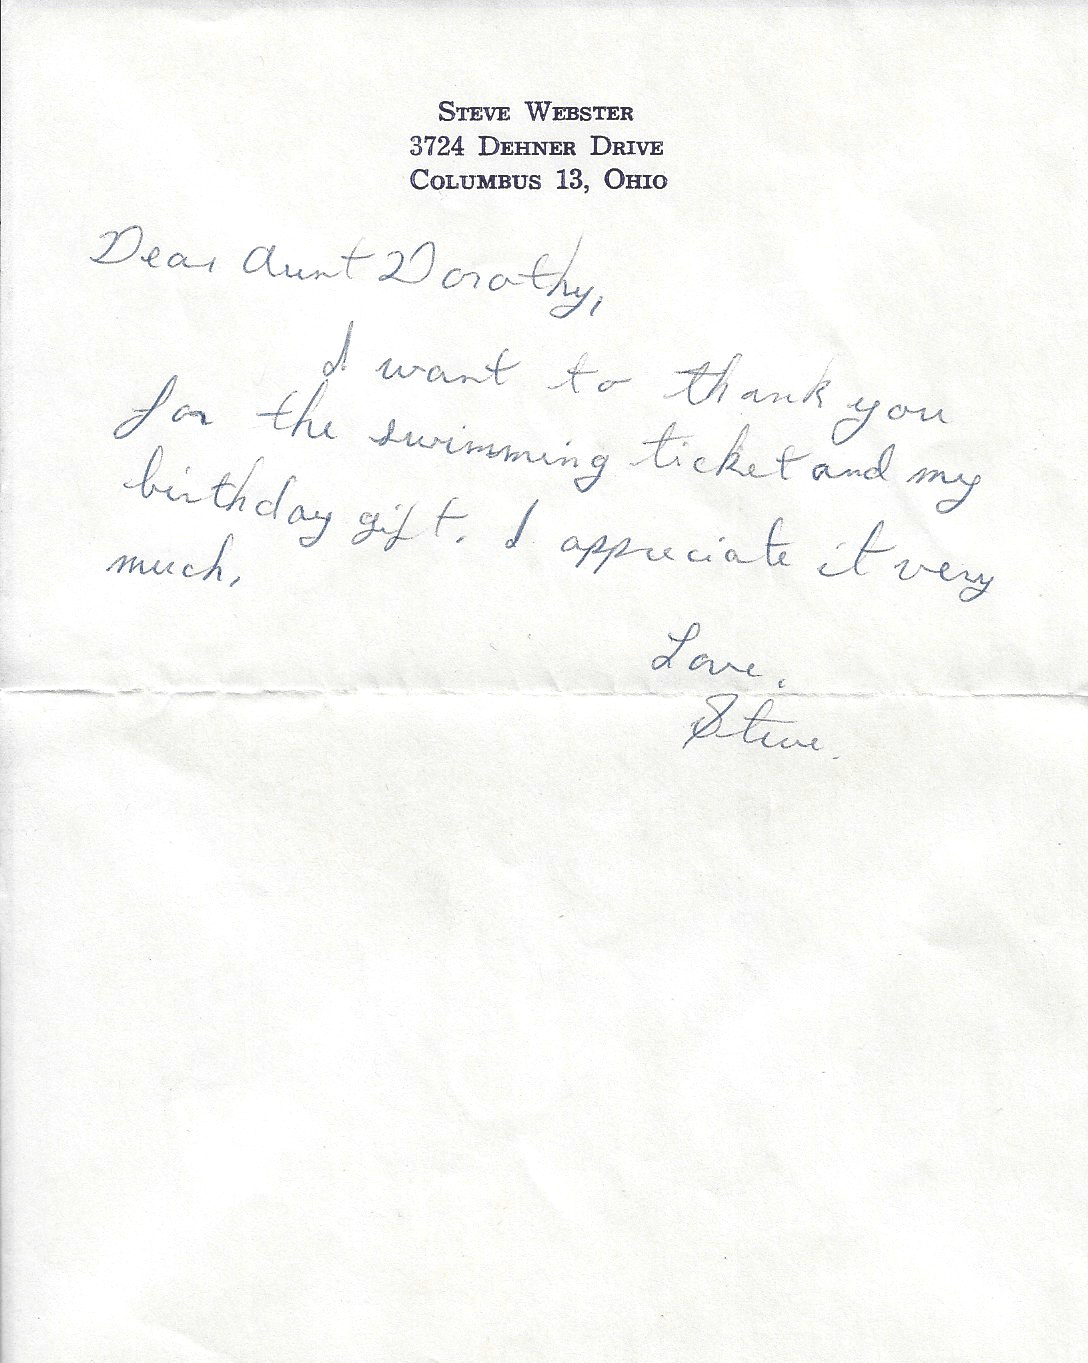 Steve Webster
3724 Dehner Drive
Columbus 13, Ohio
Dear Aunt Dorothy,
I want to thank you
for the swimming ticket and my
birthday gift. I appreciate it very
much,
Love,
Steve.